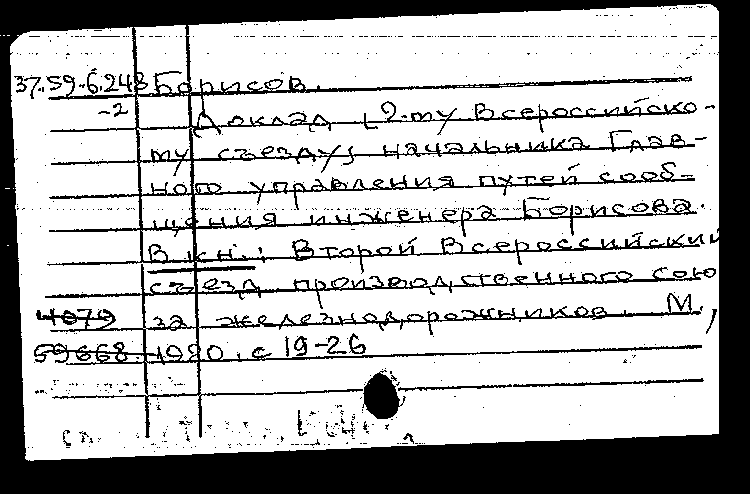 37.59.6.248 Борисов.
-2 Доклад [2-му Всероссийско-
му съезду] начальника Глав-
ного управления путей сооб-
щения инженера Борисова.
В кн.: Второй Всероссийский
съезд производственного сою
4079 за железнодорожников. М.,
59668 1920. с 19-26